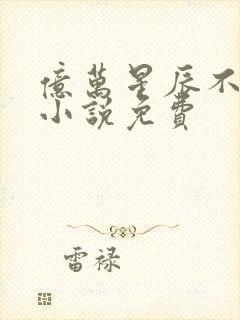 億萬星辰不
小說免費
雷禄